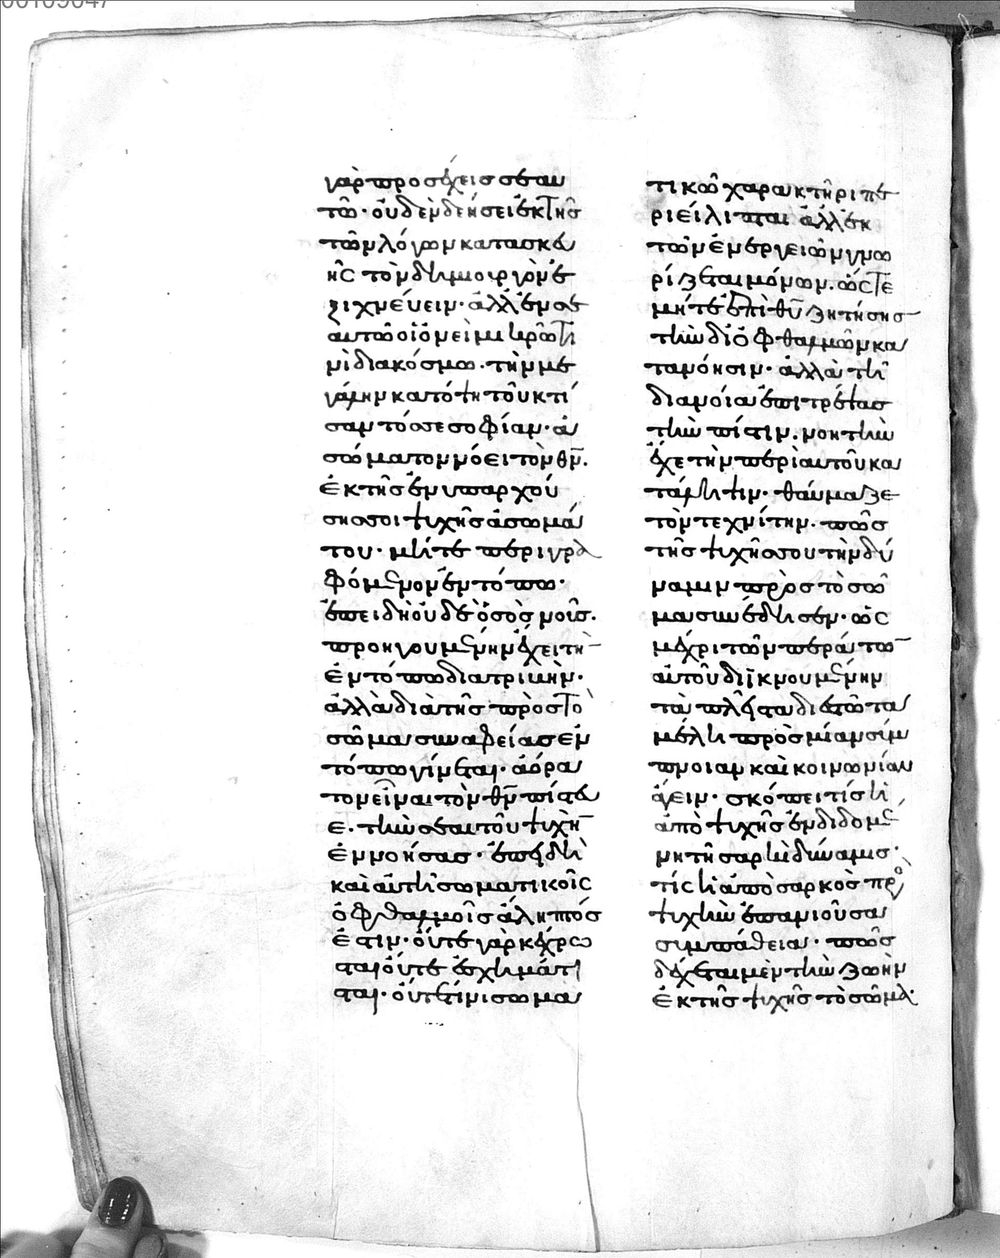 γὰρ προσέχεις σεαυ
τῶ· οὐδὲν δεήσει ἐκ τῆς
τῶν λόγων κατασκευ
ῆς τὸν δημιουργὸν ἐ
ξιχνεύειν· ἀλλ' ἐν σε
αυτῶ οἱονεὶ μικρῶ τι
νὶ διακόσμω· τὴν με
γάλην κατόψη τοῦ κτί
σαντός σε σοφίαν· ἀ
σώματον νόει τὸν θν̅.
ἐκ τῆς ἐνυπαρχού
σης σοι ψυχῆς ἀσωμά
του· μήτε περιγρα
φόμενον ἐν τόπω·
ἐπειδὴ οὐδὲ ὁ σὸς νοῦς.
προηγουμένην ἔχει τὴν
ἐν τόπω διατριβὴν·
ἀλλὰ διὰ τῆς πρὸς τὸ
σῶμα συναφείας ἐν
τόπω γίνεται· ἀόρα
τον εἶναι τὸν θν̅ πίστευ
ε. τὴν σεαυτοῦ ψυχὴν
ἐννοήσας· ἐπειδὴ
καὶ αὐτὴ σωματικοῖς
ὀφθαλμοῖς ἄληπτός
ἐστιν· οὔτε γὰρ κέχρω
σται οὔτε ἐσχημάτι
σται· οὔτε τινι σωμα
τικῶ χαρακτῆρι πε
ριείληπται ἀλλ' ἐκ
τῶν ἐνεργειῶν γνω
ρίζεται μόνων. ὥστε
μήτε ἐπὶ θυ̅ ζητήσης
τὴν δι' ὀφθαλμῶν κα
τανόησιν· ἀλλὰ τῆ
διανοία ἐπιτρέψας
τὴν πίστιν. νοητὴν
ἔχε τὴν περὶ αὐτοῦ κα
τάληψιν· θαύμαζε
τὸν τεχνίτην. πῶς
τῆς ψυχῆς σου τὴν δύ
ναμιν πρὸς τὸ σῶ
μα συνέδησεν· ὡς
μέχρι τῶν περάτων
αὐτοῦ διϊκνουμένην
τὰ πλεῖστα διεστῶτα
μέλη πρὸς μίαν σύμ
πνοιαν καὶ κοινωνίαν
ἄγειν· σκόπει τίς ἡ
ἀπὸ ψυχῆς ἐνδιδομέ
νη τῆ σαρκὶ δύναμις·
τίς ἡ ἀπὸ σαρκὸς πρὸς
ψυχὴν ἐπανιοῦσα
συμπάθεια· πῶς
δέχεται μὲν τὴν ζωὴν
ἐκ τῆς ψυχῆς τὸ σῶμα·